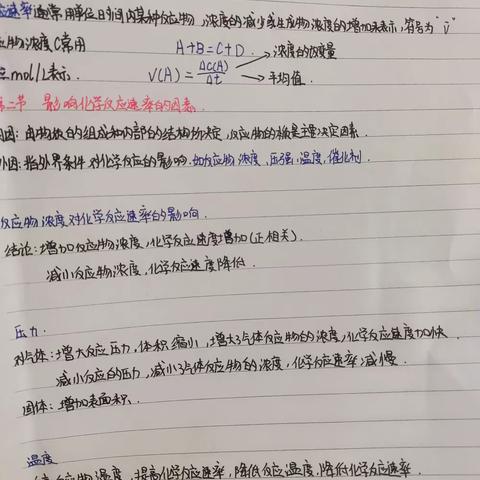 速率通常用单位时间内某种反应物浓度的减少或生成物浓度的增加来表示,符号为"v"
应物浓度C常用
A+B=C+D. → 浓度的改变量
mol/L表示. V(A)=ΔC(A)/Δt → 平均值.
第二节 影响化学反应速率的因素.
内因:由物质的组成和内部的结构所决定,反应物的
决定因素.
外因:指外界条件对化学反应的影响.如反应物浓度,压强,温度,催化剂.
反应物浓度对化学反应速率的影响.
结论:增加反应物浓度,化学反应速度增加(正相关).
减小反应物浓度,化学反应速度降低.
压力.
对气体:增大反应压力,体积缩小,增大了气体反应物的浓度,化学反应速度加快.
减小反应的压力,减小了气体反应物的浓度,化学反应速率减慢.
固体:增加表面积.
温度
反应物温度,提高化学反应速率,降低反应温度,降低化学反应速率.